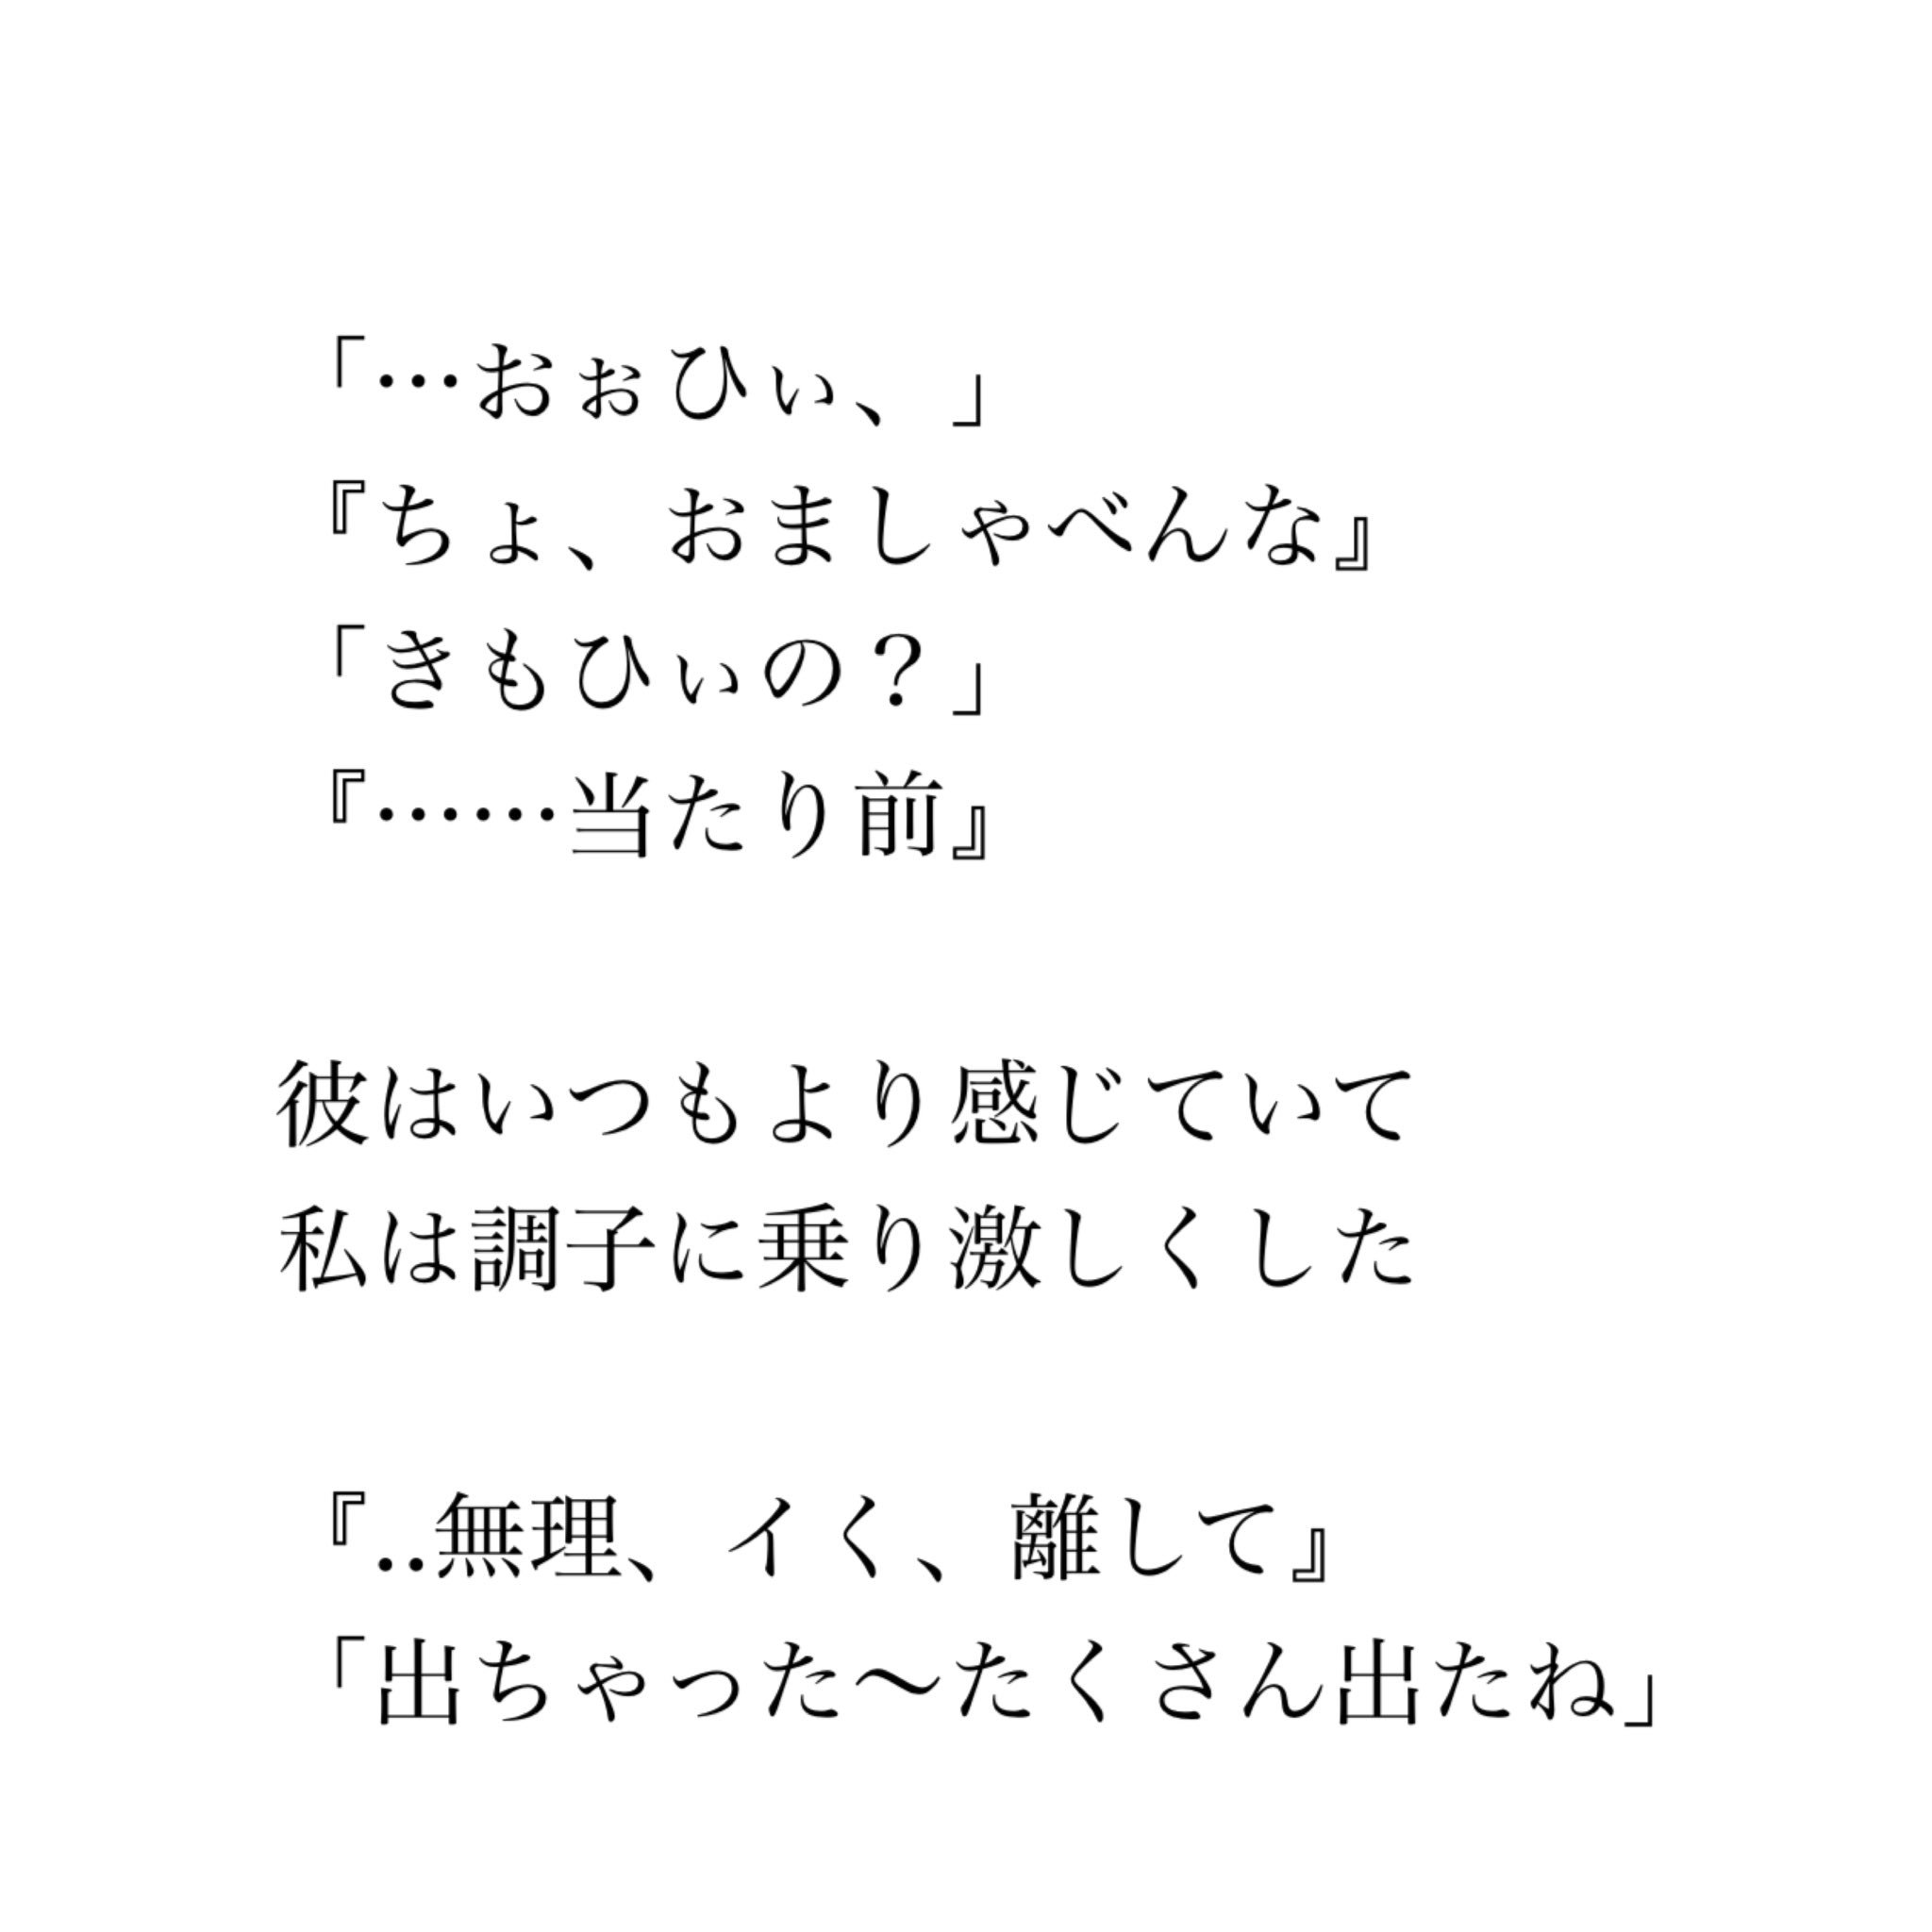 「…おぉひぃ、」
『ちょ、おましゃべんな』
「きもひぃの？」
『……当たり前』
彼はいつもより感じていて
私は調子に乗り激しくした
『..無理、イく、離して』
「出ちゃった〜たくさん出たね」